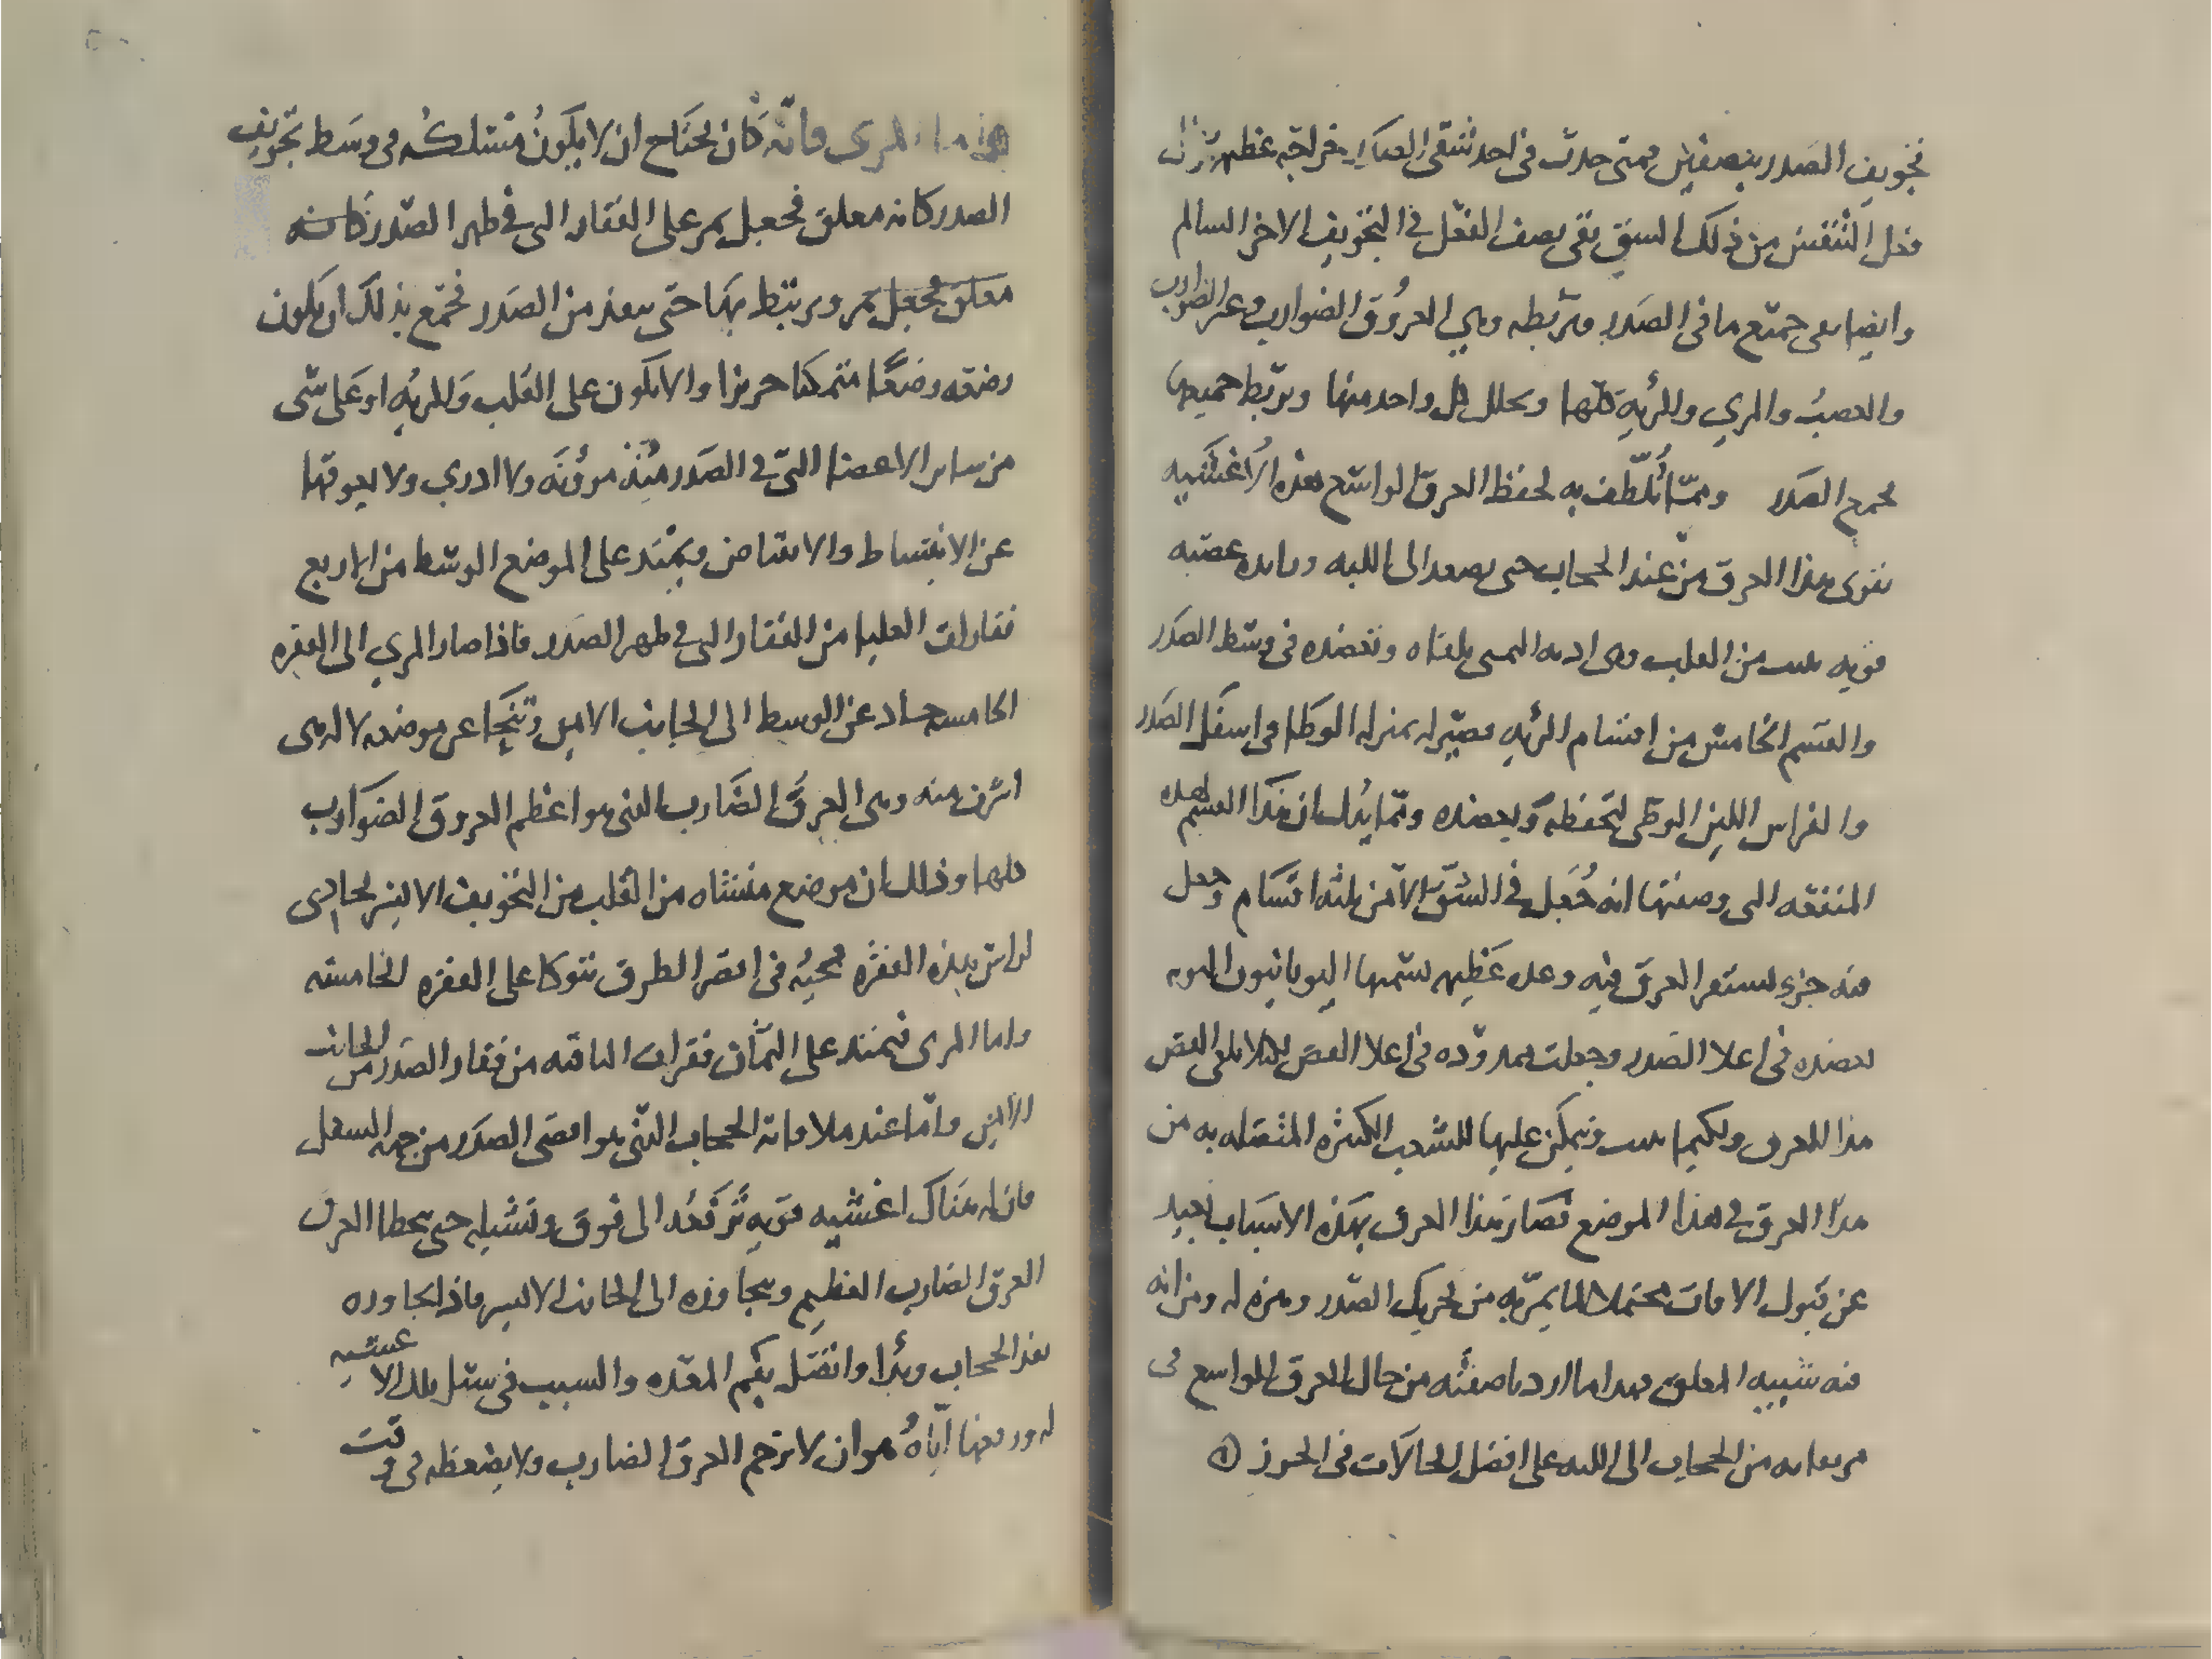 تجويف الصدر بنصفين فمتى حدث في احد شقي الصدر جراحه عظيمه
فعل التنفس من ذلك الشق بقى نصف الفعل في التجويف الاخر السالم
وايضا على جميع ما في الصدر وتربطه وهي العروق الضوارب وغير الضوارب
والعصب والمري والرئه كلها وتجلل كل واحد منها وتربط جميعها
بجميع الصدر ومما تُلُطِّف به لحفظ العرق الواسع هذه الاغشيه
تقوى هذا العرق من عند الحجاب حتى يصعد الى اللبه وباىده عصبه
قويه من القلب وهى تلقاه وتعضده في وسط الصدر
والقسم الخامس من اقسام الرئه فصيّر له بمنزله الوطا في اسفل الصدر
والفراش اللين الوطى لتحفظه ويعضده ومما يدل ان هذا القسم لهذه
المنفعه التى وصفتها انه جُعل في الشق الايمن ثلثه اقسام وجعل
منه جزء ليستقر العرق فيه وغده عظيمه تسميها اليونانيون
لعضده في اعلا الصدر وجعلت ممدوده في اعلا القص ليلا يلقى القص
هذا العرق ولكيما يمكن عليها الشعب الكثيره المنقسله به من
هذا العرق في هذا الموضع فصار هذا العرق بهذه الاسباب بعيد
عن قبول الافات محتملا لما يمر به من تحريك الصدر ومنزله ومن انه
منه شبيه المعلق فهذا ما اردنا صفته من حال العرق الواسع في
من الحجاب الى اللبه على افضل الحالات في الحرز
واما المرى فانه كان يحتاج ان لا يكون مسلكه في وسط تجويف
الصدر كانه معلق فجعل يمر على الفقار التى في ظهر الصدر كانه
معلق فجعل يمر ويرتبط بها حتى ينفذ من الصدر فجمع بذلك ان يكون
وضعه وضعًا متمكنا حريزا والا يكون على القلب والرئه او على شى
من ساير الاعضا التى في الصدر منه مؤنه ولا اذى ولا يعوقها
عن الانبساط والانقباض ويمتد على الموضع الوسط من الاربع
فقارات العليا من الفقار التى في ظهر الصدر فاذا صار المري الى الفقره
الخامسه حاد عن الوسط الى الجانب الايمن وتنحا عن موضعه لا الذى
اشرف منه وهى العرق الضارب الذى هو اعظم العروق الضوارب
كلها وذلك ان موضع منشاه من القلب من التجويف الايسر يحاذى
لراس هذه الفقره فجيه في اقصر الطرق يتوكا على الفقره الخامسه
واما المرى فيمتد على الثمان فقرات الباقيه من فقار الصدر من الجانب
الايمن واما عند ملاقاته الحجاب الذى هو اقصى الصدر من جهه السفل
فان له هناك اغشيه قويه ترفعه الى فوق وتشيله حتى يتخطا العرق
العرق الضارب العظيم ويجاوزه الى الجانب الايسر فاذا جاوزه
نفذ الحجاب وبدا واتصل بفم المعده والسبب في شيل تلك الاغشيه
له ورفعها اياه هو ان لا يزحم العرق الضارب ولا يضغطه في وقت